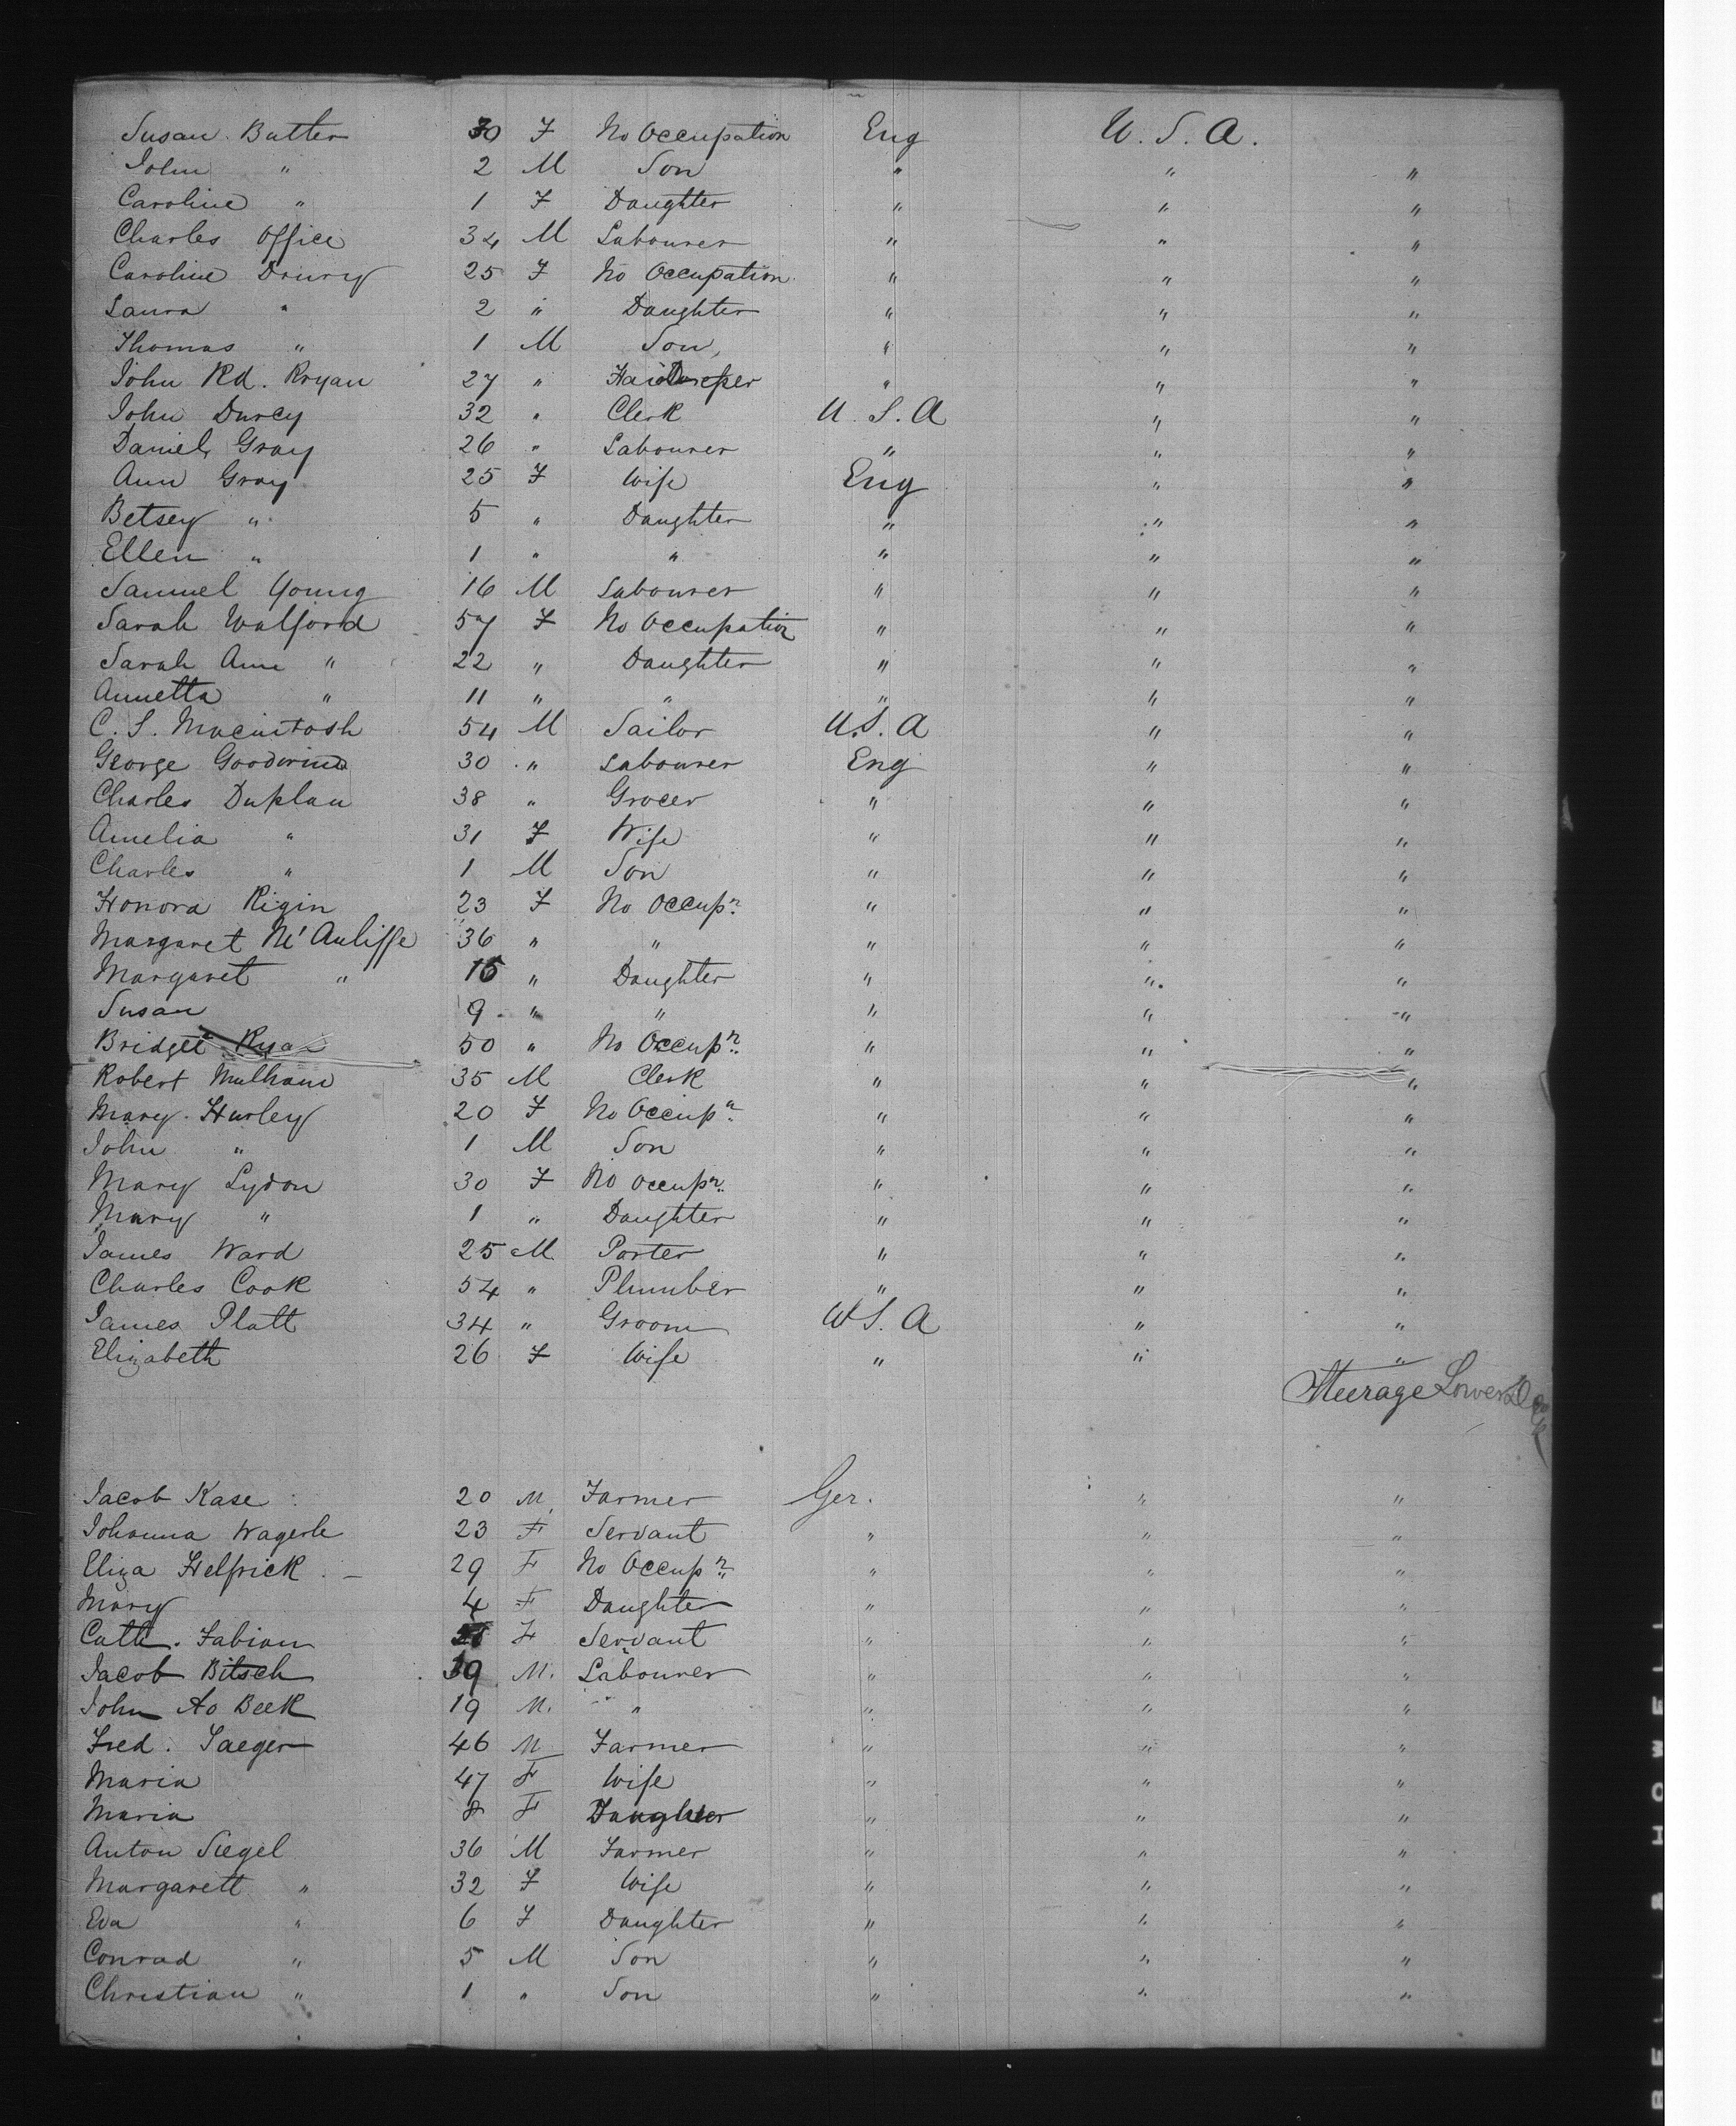 Susan Butler 30 F No Occupation Eng U. S. A.
John " 2 M Son " " "
Caroline " 1 F Daughter " " "
Charles Office 34 M Labourer " " "
Caroline Drury 25 F No Occupation " " "
Laura " 2 " Daughter " " "
Thomas " 1 M Son " " "
John Rd. Ryan 27 " " " "
John Darcy 32 " Clerk U. S. A " "
Daniel Gray 26 " Labourer " " "
Ann Gray 25 F Wife Eng " "
Betsey " 5 " Daughter " " "
Ellen " 1 " " " " "
Samuel Young 16 M Labourer " " "
Sarah Walford 57 F No Occupation " " "
Sarah Ann " 22 " Daughter " " "
Annetta " 11 " " " " "
C. S. Macintosh 54 M Sailor U. S. A " "
George 30 " Labourer Eng " "
Charles Duplan 38 " Grocer " " "
Amelia " 31 F Wife " " "
Charles " 1 M Son " " "
Honora Rigin 23 F No Occupn. " " "
Margaret Mc'Auliffe 36 " " " " "
Margaret " 15 " Daughter " " "
Susan 9 " " " " "
Bridget Ryan 50 " No Occupn. " " "
Robert Mulham 35 M Clerk " " "
Mary Hurley 20 F No Occupn. " " "
John " 1 M Son " " "
Mary Lydon 30 F No Occupn. " " "
Mary " 1 " Daughter " " "
James Ward 25 M Porter " " "
Charles Cook 54 " Plumber " " "
James Platt 34 " Groom U S. A " "
Elizabeth 26 F Wife " " "
Steerage Lower Deck
Jacob Kase 20 M Farmer Ger. " "
Johanna Wagerle 23 F Servant " " "
Eliza Helfrick 29 F No Occupn. " " "
Mary 4 F Daughter " " "
Cath. Fabian F Servant " " "
Jacob Bitsch 39 M. Labourer " " "
John Ao Beek 19 M. " " " "
Fred. Saeger 46 M Farmer " " "
Maria 47 F Wife " " "
Maria 8 F Daughter " " "
Anton Siegel 36 M Farmer " " "
Margarett " 32 F Wife " " "
Eva " 6 F Daughter " " "
Conrad " 5 M Son " " "
Christian " 1 " Son " " "
BELL & HOWELL